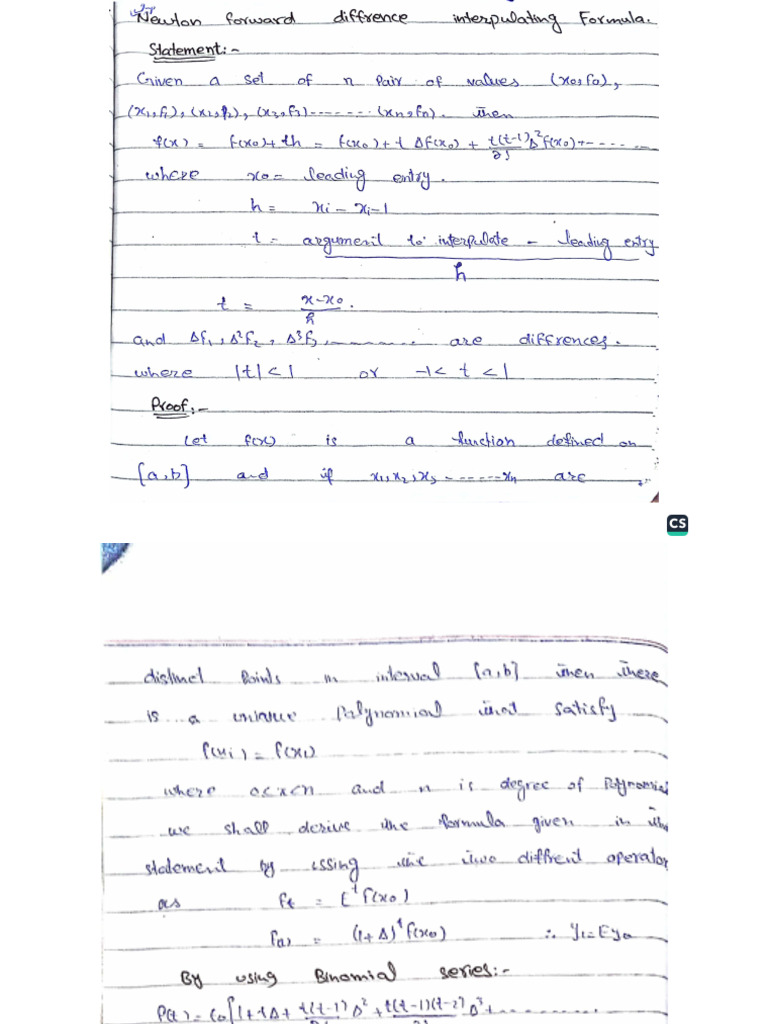 Newton forward diffrence interpulating Formula.
Statement:-
Given a set of n pair of values (x0,f0),
(x1,f1), (x2,f2), (x3,f3)-------(xn,fn). then
f(x) = f(x0)+th = f(x0)+t Δf(x0) + t(t-1)/2! Δ²f(x0)+-----
where x0= leading entry.
h = xi - xi-1
t = argument to interpulate - leading entry
h
t = x-x0/h.
and Δf1, Δ²f2, Δ³f3, ......... are diffrences.
where |t|<1 or -1< t <1
Proof:-
Let f(x) is a function defined on
[a,b] and if x1,x2,x3 -------xn are
CS
distinct Points in interval [a,b] then there
is a unique Polynomial that satisfy
P(xi) = f(xi)
where o<x<n and n is degree of Polynomial
we shall derive the formula given in the
statement by using the two diffrent operator
as ft = E^t f(x0)
= (1+Δ)^t f(x0) ∴ y1=Ey0
By using Binomial series:-
P(t) = [1+tΔ+ t(t-1) Δ² + t(t-1)(t-2) Δ³+.........